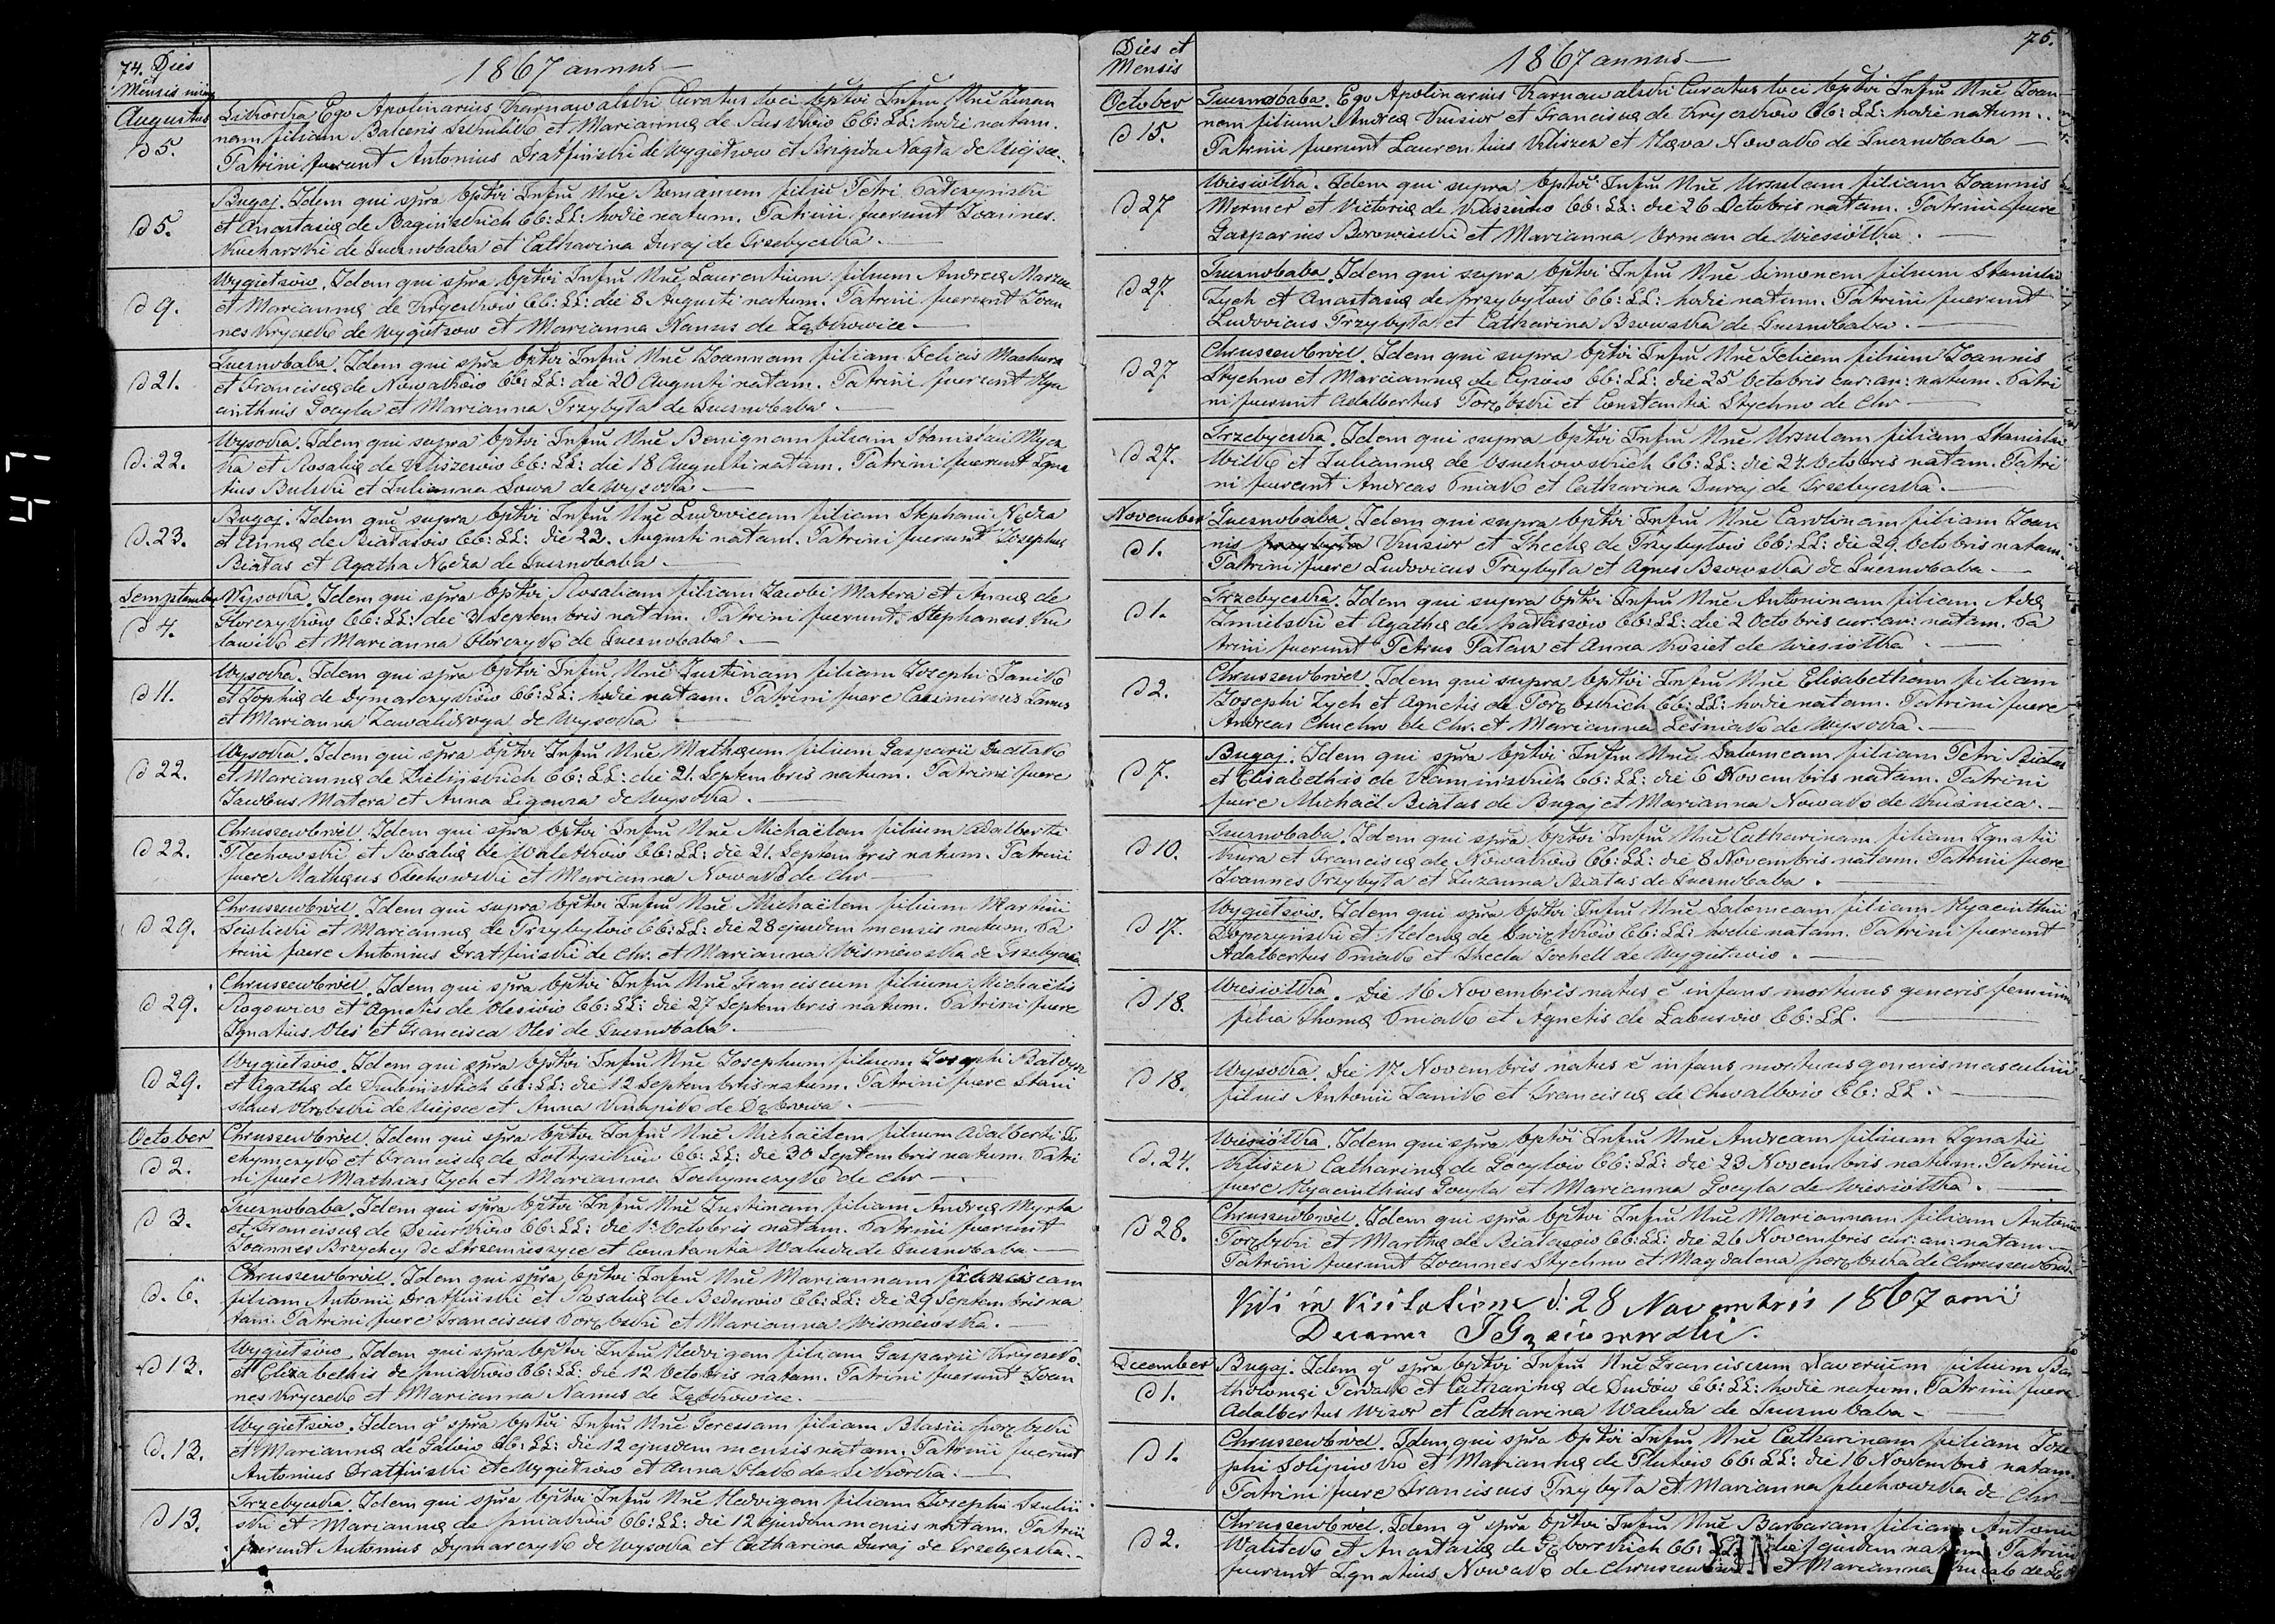 74. Dies
et
Mensis
1867 annus
Augustus
d 5.
Sikorka Ego Apolinarius Karnawalski Curatus loci bptvi Infm Nne Zuzan
nam filiam et Mariannæ de CC: LL: hodie natam.
Patrini fuerunt Antonius Dratfinski de Wygiełzow et Brigida Nagła de Ujejsce.
d 5.
Bugaj. Idem qui spra bptvi Infm Nne Romanum filiu Petri
et Anastasiæ de CC: LL: hodie natum. Patrini fuerunt Joannes
Kucharski de Tucznobaba et Catharina Duraj de Trzebyczka.
d 9.
Wygiełzow. Idem qui spra bptvi Infm Nne Laurentium filium Andreæ
et Mariannæ de Kryczkow CC: LL: die 8 Augusti natum. Patrini fuerunt Joan
nes Kryczek de Wygiełzow et Marianna Namus de Ząbkowice.
d 21.
Tucznobaba. Idem qui spra bptvi Infm Nne Joannam filiam Felicis Machura
et Franciscæ de Nowakow CC: LL: die 20 Augusti natam. Patrini fuerunt Hya
cinthus Gocyla et Marianna Przybyła de Tucznobaba.
d. 22.
Wysocka. Idem qui supra bptvi Infm Nne Benignam filiam Stanislai
et Rosaliæ de Kliszewow CC: LL: die 18 Augusti natam. Patrini fuerunt Igna
tius Bulski et Julianna Sowa de Wysocka.
d. 23.
Bugaj. Idem qui supra bptvi Infm Nne Ludovicam filiam Stephani Nędza
et Annæ de Białasow CC: LL: die 23. Augusti natam. Patrini fuerunt Josephus
Białas et Agatha Nędza de Tucznobaba.
Semptember
d 4.
Wysocka. Idem qui spra bptvi Rosaliam filiam Jacobi Matera et Annæ de
Florczykow CC: LL: die 3 Septembris natam. Patrini fuerunt Stephanus
et Marianna Florczyk de Tucznobaba.
d 11.
Wysocka. Idem qui spra bptvi Infm Nne Justinam filiam Josephi Janik
et Sophiæ de Dymarczykow CC: LL: hodie natam. Patrini fuere Casimirus
et Marianna Zawalidroga de Wysocka
d 22.
Wysocka. Idem qui spra bptvi Infm Nne Mathæum filium Gasparii Dudlak
et Mariannæ de Zielinskich CC: LL: die 21. Septembris natum. Patrini fuere
Jacobus Matera et Anna Ligenza de Wysocka.
d 22.
Chruszczobród. Idem qui spra bptvi Infm Nne Michaëlem filium Adalberti
Plechowski et Rosaliæ de Walotkow CC: LL: die 21. Septembris natum. Patrini
fuere Mathæus Plechowski et Marianna Nowak de Chr
d 29.
Chruszczobród. Idem qui supra bptvi Infm Nne Michaëlem filium Martini
et Mariannæ de Przybyłow CC: LL: die 28 ejusdem mensis natum. Pa
trini fuere Antonius Dratfinski de Chr. et Marianna Wisniewska de Trzebyczka
d 29.
Chruszczobród. Idem qui spra bptvi Infm Nne Franciscum filium Michaëlis
Rogowicz et Agnetis de Olesiow CC: LL: die 27 Septembris natum. Patrini fuere
Ignatius Oles et Francisca Oles de Tucznobaba.
d 29.
Wygiełzow. Idem qui spra bptvi Infm Nne Josephum filium Josephi
et Agathæ de CC: LL: die 12 Septembris natum. Patrini fuere Stani
slaus de Ujejsce et Anna de Dąbrowa.
October
d 2.
Chruszczobród. Idem qui spra bptvi Infm Nne Michaëlem filium Adalberti Jo
chymczyk et Franciscæ de CC: LL: die 30 Septembris natum. Patri
ni fuere Mathias Zych et Marianna Jochymczyk de Chr
d 3.
Tucznobaba. Idem qui spra bptvi Infm Nne Justinam filiam Andreæ Myrta
et Franciscæ de CC: LL: die 1. Octobris natam. Patrini fuerunt
Joannes Brzychcy de Strzemieszyce et Constantia Waluda de Tucznobaba
d. 6.
Chruszczobród. Idem qui spra bptvi Infm Nne Mariannam Franciscam
filiam Antonii Dratfinski et Rosaliæ de CC: LL: die 29 Septembris na
tam. Patrini fuere Franciscus Porębski et Marianna Wisniewska.
d 13.
Wygiełzow. Idem qui spra bptvi Infm Hedvigem filiam Gasparii Kryczek
et Elizabethis de pniakow CC: LL: die 12 Octobris natam. Patrini fuerunt Joan
nes Kryczek et Marianna Namus de Ząbkowice.
d. 13.
Wygiełzow. Idem q spra bptvi Infm Nne Teressam filiam Blasii porębski
et Mariannæ de CC: LL: die 12 ejusdem mensis natam. Patrini fuerunt
Antonius Dratfinski de Wygiełzow et Anna de Sikorka.
d 13.
Trzebyczka. Idem qui spra bptvi Infm Nne Hedvigem filiam Josephi
ski et Mariannæ de pniakow CC: LL: die 12 ejusdem mensis natam. Patrini
fuerunt Antonius Dymarczyk de Wysocka et Catharina Duraj de Trzebyczka.
Dies et
Mensis
1867 annus
75.
October
d 15.
Tucznobaba. Ego Apolinarius Karnawalski Curatus loci bptvi Infm Nne Joan
nem filium Andreæ Kusior et Franciscæ de Kryczkow CC: LL: hodie natum.
Patrini fuerunt Laurentius Kliszcz et Hæva Nowak de Tucznobaba
d 27
Wiesiółka. Idem qui supra bptvi Infm Nne Ursulam filiam Joannis
Mermer et Victoriæ de CC: LL: die 26 Octobris natam. Patrini fuere
Gasparius Borowiecki et Marianna Orman de Wiesiółka.
d 27.
Tucznobaba. Idem qui supra bptvi Infm Nne Simonem filium Stanislai
Zych et Anastasiæ de przybyłow CC: LL: hodie natum. Patrini fuerunt
Ludovicus Przybyła et Catharina Bzowska de Tucznobaba.
d 27
Chruszczobród. Idem qui supra bptvi Infm Nne Felicem filium Joannis
Stychno et Mariannæ de CC: LL: die 25 Octobris cur: an: natum. Patri
ni fuerunt Adalbertus Porębski et Constantia Stychno de Chr
d 27.
Trzebyczka. Idem qui supra bptvi Infm Nne Ursulam filiam Stanislai
Wilk et Juliannæ de Osuchowskich CC: LL: die 27. Octobris natam. Patri
ni fuerunt Andreas Pniak et Catharina Duraj de Trzebyczka.
November
d 1.
Tucznobaba. Idem qui supra bptvi Infm Nne Carolinam filiam Joan
nis przybyła Kusior et Theclæ de Przybyłow CC: LL: die 29. Octobris natam.
Patrini fuere Ludovicus Przybyła et Agnes Bzowska de Tucznobaba.
d 1.
Trzebyczka. Idem qui supra bptvi Infm Nne Antoninam filiam Adæ
et Agathæ de CC: LL: die 2 Octobris cur: an: natam. Pa
trini fuerunt Petrus et Anna Kozieł de Wiesiółka.
d 2.
Chruszczobród. Idem qui supra bptvi Infm Nne Elisabetham filiam
Josephi Zych et Agnetis de Porębskich CC: LL: hodie natam. Patrini fuere
Andreas de Chr. et Marianna Leśniak de Wysocka.
d 7.
Bugaj. Idem qui spra bptvi Infm Nne Salomeam filiam Petri Białas
et Elisabethis de Kaminskich CC: LL: die 6 Novembris natam. Patrini
fuere Michaël Białas de Bugaj et Marianna Nowak de Kuźnica.
d 10.
Tucznobaba. Idem qui spra bptvi Infm Nne Catharinam filiam Ignatii
Kura et Franciscæ de Nowakow CC: LL: die 8 Novembris natam. Patrini fuere
Joannes Przybyła et Zuzanna Białas de Tucznobaba.
d 17.
Wygiełzow. Idem qui spra bptvi Infm Nne Salomeam filiam Hyacinthii
et Helenæ de CC: LL: hodie natam. Patrini fuerunt
Adalbertus Pniak et Thecla de Wygiełzow.
d 18.
Wiesiółka. Die 16 Novembris natus ē infans mortuus generis feminini
filia Thomæ Pniak et Agnetis de Labusow CC: LL.
d 18.
Wysocka. Die 17 Novembris natus ē infans mortuus generis masculini
filius Antonii Janik et Franciscæ de Chwalbow CC: LL.
d. 24.
Wiesiółka. Idem qui spra bptvi Infm Nne Andream filium Ignatii
Kliszcz Catharinæ de Gocylow CC: LL: die 23 Novembris natum. Patrini
fuere Hyacinthius Gocyla et Marianna Gocyla de Wiesiółka.
d 28.
Chruszczobród. Idem qui spra bptvi Infm Nne Mariannam filiam Antonii
Porębski et Marthæ de Białasow CC: LL: die 26 Novembris cur: an: natam.
Patrini fuerunt Joannes Stychno et Magdalena porębska de Chruszczobród
Vidi in Visitatione d. 28 Novembris 1867 anni
Decanus
December
d 1.
Bugaj. Idem q spra bptvi Infm Nne Franciscum Xaverium filium Bar
tholomæi et Catharinæ de Dudow CC: LL: hodie natum. Patrini fuere
Adalbertus Wizor et Catharina Waluda de Tucznobaba.
d 1.
Chruszczobród. Idem qui spra bptvi Infm Nne Catharinam filiam Jose
phi et Mariannæ de Plutow CC: LL: die 16 Novembris natam.
Patrini fuere Franciscus Przybyła et Marianna plechowska de Chr
d 2.
Chruszczobród. Idem q spra bptvi Infm Nne Barbaram filiam Antonii
et Anastasiæ de CC: LL: die ejusdem natam. Patrini
fuerunt Ignatius Nowak de Chruszczobród et Marianna